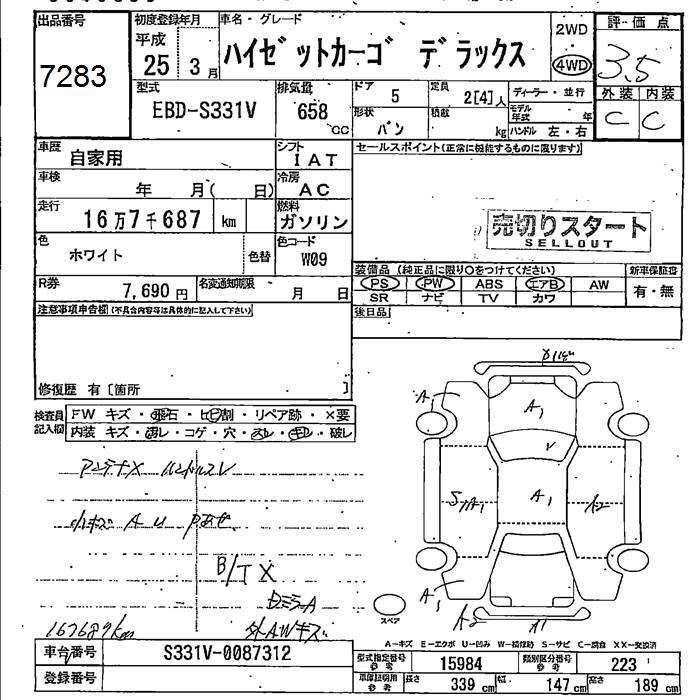 出品番号
7283
初度登録年月
平成
25 3月
車名・グレード
ハイゼットカーゴ デラックス
2WD
4WD
評価点
3.5
外装 内装
C C
型式
EBD-S331V
排気量
658 CC
ドア
5
定員
2[4]人
ディーラー・並行
形状
バン
積載
kg
モデル年式 年
ハンドル 左・右
車歴
自家用
シフト
IAT
セールスポイント(正常に機能するものに限ります)
車検
年 月( 日)
冷房
AC
走行
16万7千687 km
燃料
ガソリン
売切りスタート
SELLOUT
色
ホワイト
色替
色コード
W09
装備品 (純正品に限り○をつけてください)
新車保証書
PS PW ABS エアB AW
有・無
SR ナビ TV カワ
R券
7,690円
名変通知期限
月 日
後日品
注意事項申告欄(不具合内容等は具体的に記入して下さい)
修復歴 有〔箇所 〕
検査員
記入欄
FW キズ・飛石・ヒビ割・リペア跡・×要
内装 キズ・汚レ・コゲ・穴・スレ・キレ・破レ
アンテナX ハンドルスレ
小キズ A U Pあせ
B/TX
BミラーA
167687km
外AWキズ
A1
A1
V
S1A1
A1
A2
A1
A2
A1
スペア
A-キズ E-エクボ U-凹み W-補修跡 S-サビ C-腐食 XX-交換済
車台番号
S331V-0087312
登録番号
型式指定番号
参考
15984
類別区分番号
参考
223
車庫証明用
参考
長さ
339 cm
幅
147 cm
高さ
189 cm